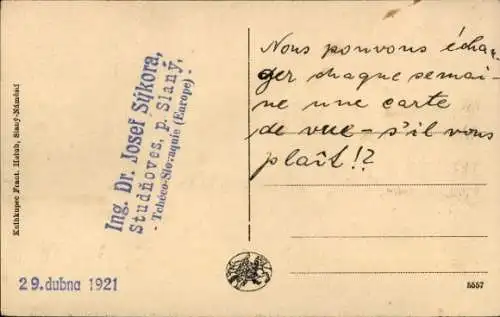 Knihkupec Frant. Holub, Slaný-Náměstí
Ing. Dr. Josef Sýkora,
Studňoves, p. Slaný,
- Tchéco-Slovaquie (Europe) -
29. dubna 1921
Nous pouvons échan-
ger chaque semai-
ne une carte
de vue - s'il vous
plaît!?
5557